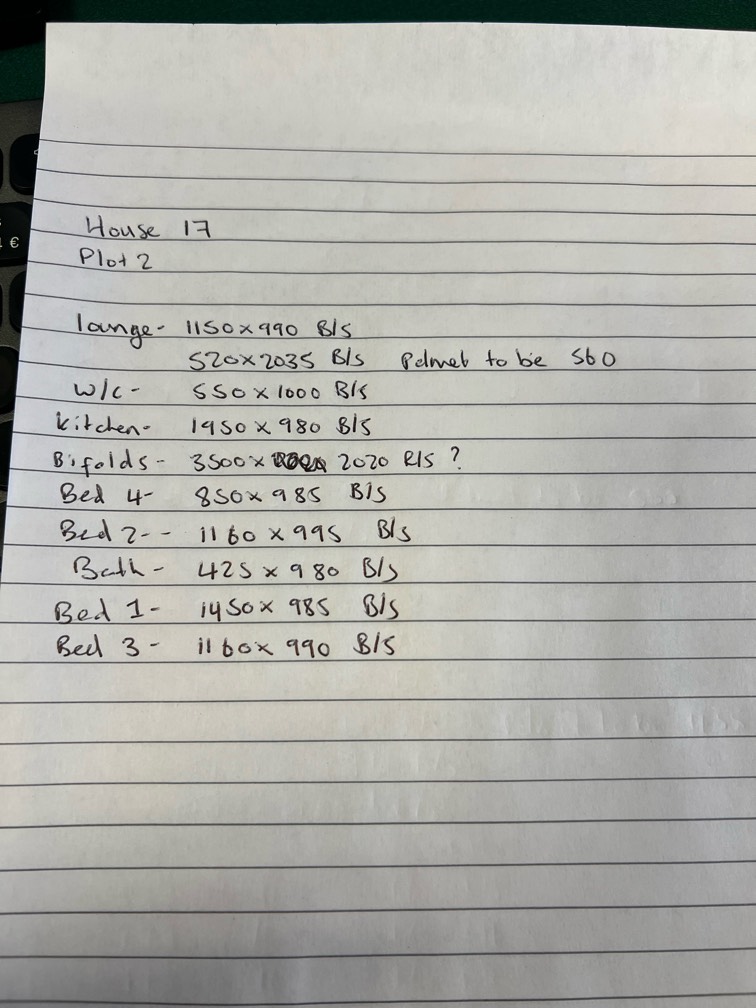 House 17
Plot 2
lounge- 1150x990 B/S
520x2035 B/S Pelmet to be 560
W/C- 550x1000 B/S
Kitchen- 1950x980 B/S
Bifolds- 3500x 2020 R/S ?
Bed 4- 850x985 B/S
Bed 2-- 1160x995 B/S
Bath- 425x980 B/S
Bed 1- 1450x985 B/S
Bed 3- 1160x990 B/S